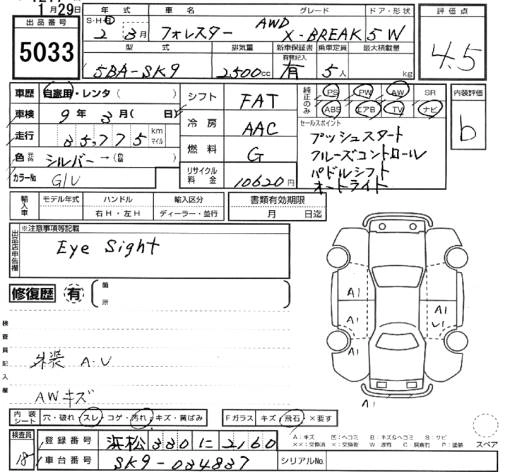 月29日
出品番号
5033
年式 車名 グレード ドア・形状
2年 3月 フォレスター AWD X-BREAK 5W
型式 排気量 新車保証書 乗車定員 最大積載量
5BA-SK9 2500cc 有 5人 kg
評価点
4.5
車歴 自家用・レンタ( )
車検 9年 3月( 日)
走行 35,775 km マイル
色 シルバー→( )
カラーNo. G1U
シフト FAT
冷房 AAC
燃料 G
リサイクル料金 10620円
純正のみ PS PW AW SR
ABS エアB TV ナビ
セールスポイント
プッシュスタート
クルーズコントロール
パドルシフト
オートライト
内装評価
b
輸入車 モデル年式 ハンドル 輸入区分 書類有効期限
右H・左H ディーラー・並行 月 日迄
※注意事項等記載
Eye Sight
修復歴 有 箇所
検査員記入欄
外装 A・U
AWキズ
A1 A1
A1 A1 U1
A1
内装シート 穴・破れ スレ コゲ・汚れ・キズ・黄ばみ Fガラス キズ・飛石・×要す
スペア
検査員 18
登録番号 浜松 330 に 2160
車台番号 SK9-034837 シリアルNo.